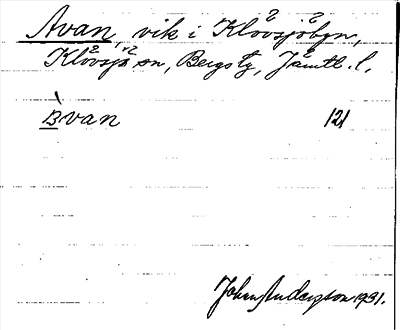 Avan, vik i Klövsjöbyn,
Klövsjö sn, Bergs tg, Jämtl. l.
Àvan 121
Johan Anderzson 1931.